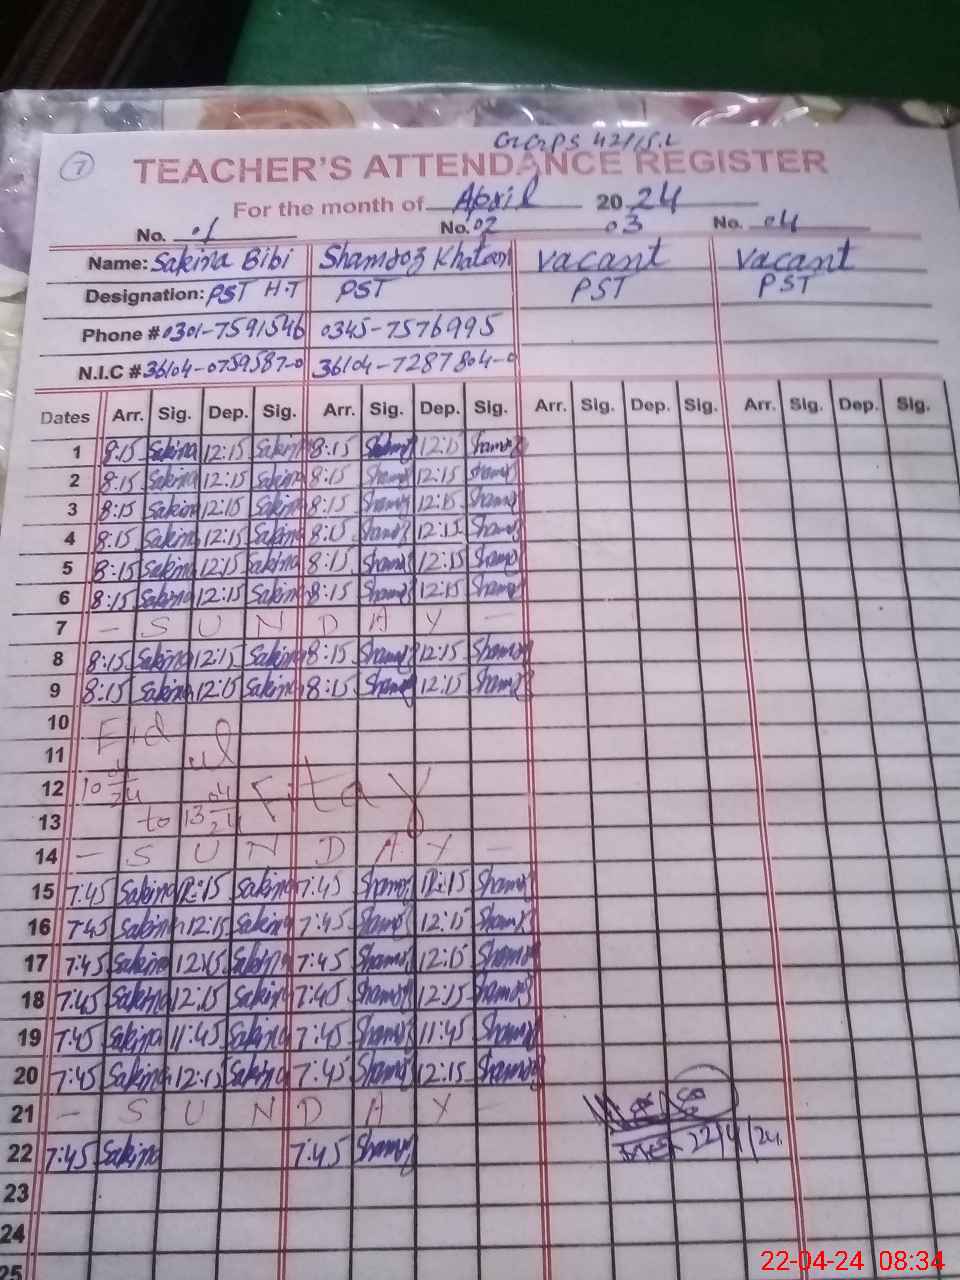 7
GGPS 42/15.L
TEACHER'S ATTENDANCE REGISTER
For the month of April 2024
No. 01 No. 02 03 No. 04
Name: Sakina Bibi Shamroz Khatoon vacant vacant
Designation: PST H.T PST PST PST
Phone # 0301-7591546 0345-7576995
N.I.C # 36104-0759587-0 36104-7287804-0
Dates Arr. Sig. Dep. Sig. Arr. Sig. Dep. Sig. Arr. Sig. Dep. Sig. Arr. Sig. Dep. Sig.
1 8:15 Sakina 12:15 Sakina 8:15 Shamroz 12:15 Shamroz
2 8:15 Sakina 12:15 Sakina 8:15 Shamroz 12:15 Shamroz
3 8:15 Sakina 12:15 Sakina 8:15 Shamroz 12:15 Shamroz
4 8:15 Sakina 12:15 Sakina 8:15 Shamroz 12:15 Shamroz
5 8:15 Sakina 12:15 Sakina 8:15 Shamroz 12:15 Shamroz
6 8:15 Sakina 12:15 Sakina 8:15 Shamroz 12:15 Shamroz
7 - S U N D A Y -
8 8:15 Sakina 12:15 Sakina 8:15 Shamroz 12:15 Shamroz
9 8:15 Sakina 12:15 Sakina 8:15 Shamroz 12:15 Shamroz
10 Eid
11 ul
12 10 04/24 Fitay
13 to 13 04/24
14 - S U N D A Y -
15 7:45 Sakina 12:15 Sakina 7:45 Shamroz 12:15 Shamroz
16 7:45 Sakina 12:15 Sakina 7:45 Shamroz 12:15 Shamroz
17 7:45 Sakina 12:15 Sakina 7:45 Shamroz 12:15 Shamroz
18 7:45 Sakina 12:15 Sakina 7:45 Shamroz 12:15 Shamroz
19 7:45 Sakina 11:45 Sakina 7:45 Shamroz 11:45 Shamroz
20 7:45 Sakina 12:15 Sakina 7:45 Shamroz 12:15 Shamroz
21 - S U N D A Y -
22 7:45 Sakina 7:45 Shamroz 22/4/24.
23
24
25
22-04-24 08:34